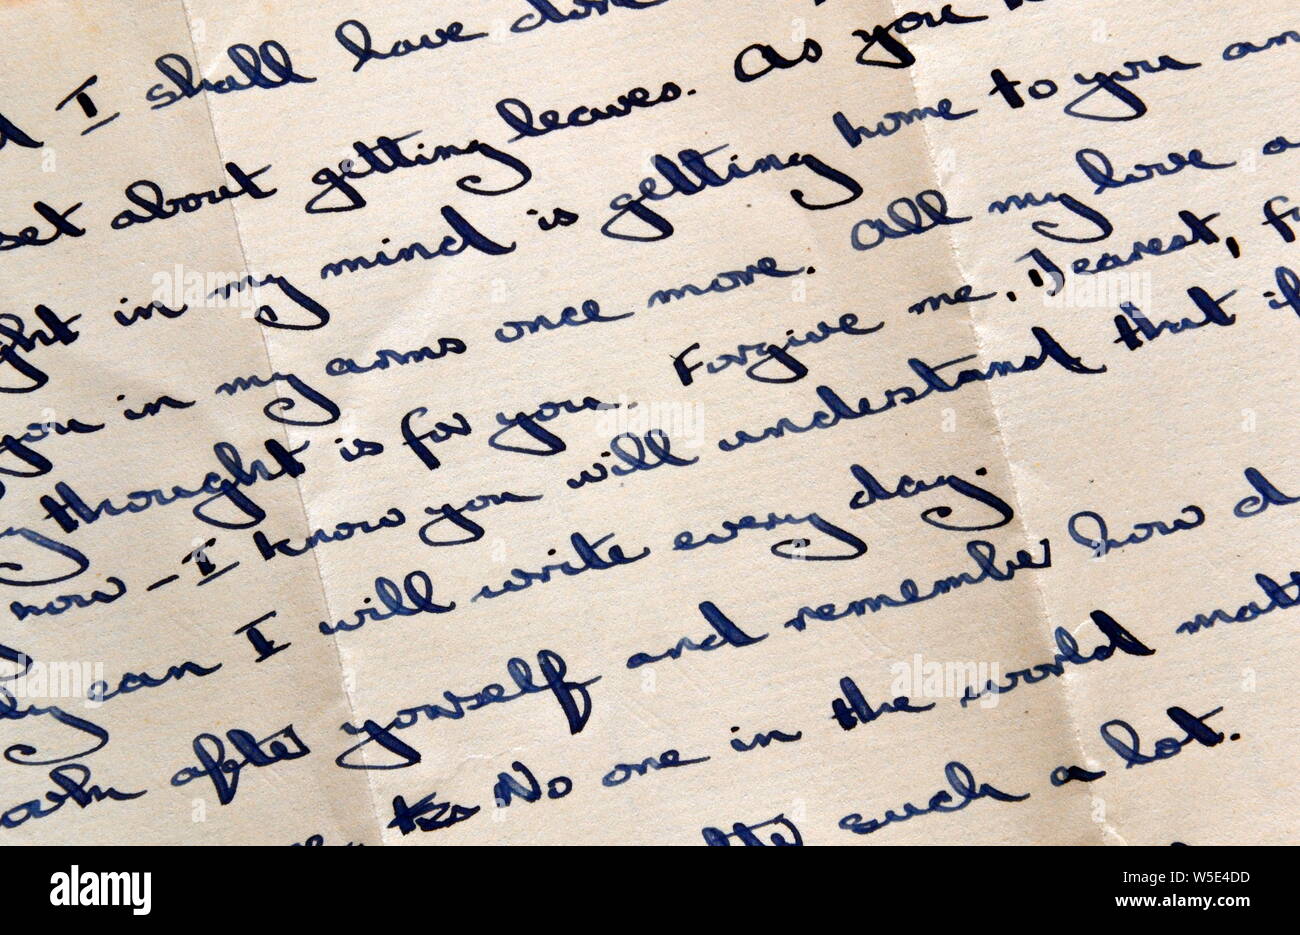 I shall have done
set about getting leaves. As you
in my mind is getting home to you an
you in my arms once more. All my love a
thought is for you. Forgive me, Dearest, f
now – I know you will understand that if
can I will write every day.
after yourself and remember how d
No one in the world matt
such a lot.
alamy
Image ID: W5E4DD
www.alamy.com